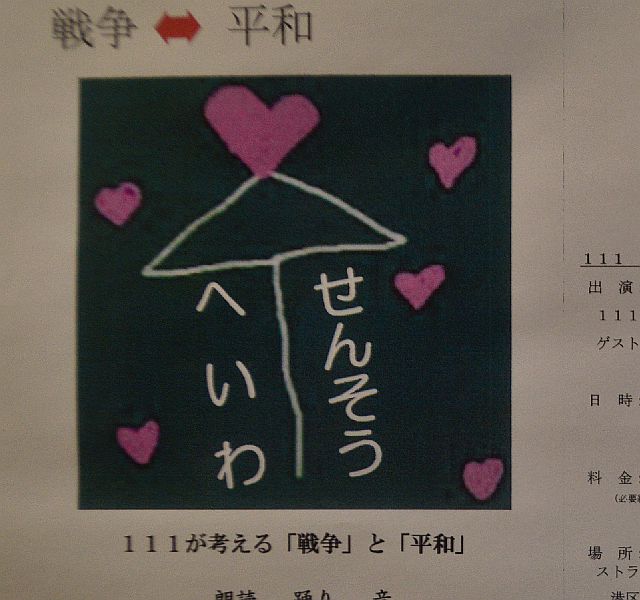 戦争 ⬌ 平和
せんそう
へいわ
111が考える「戦争」と「平和」
朗読 踊り 音
111
出 演
111
ゲスト
日 時:
料 金:
(必要
場 所:
ストラ
港区